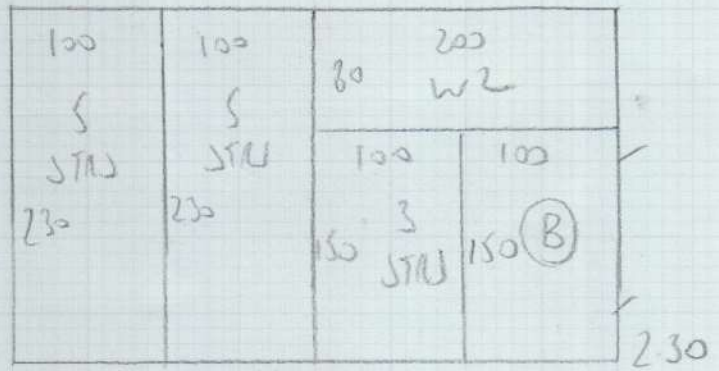 100
5
STRS
230
100
5
STRS
230
200
80
W2
100
3
150
STRS
100
150
B
2.30